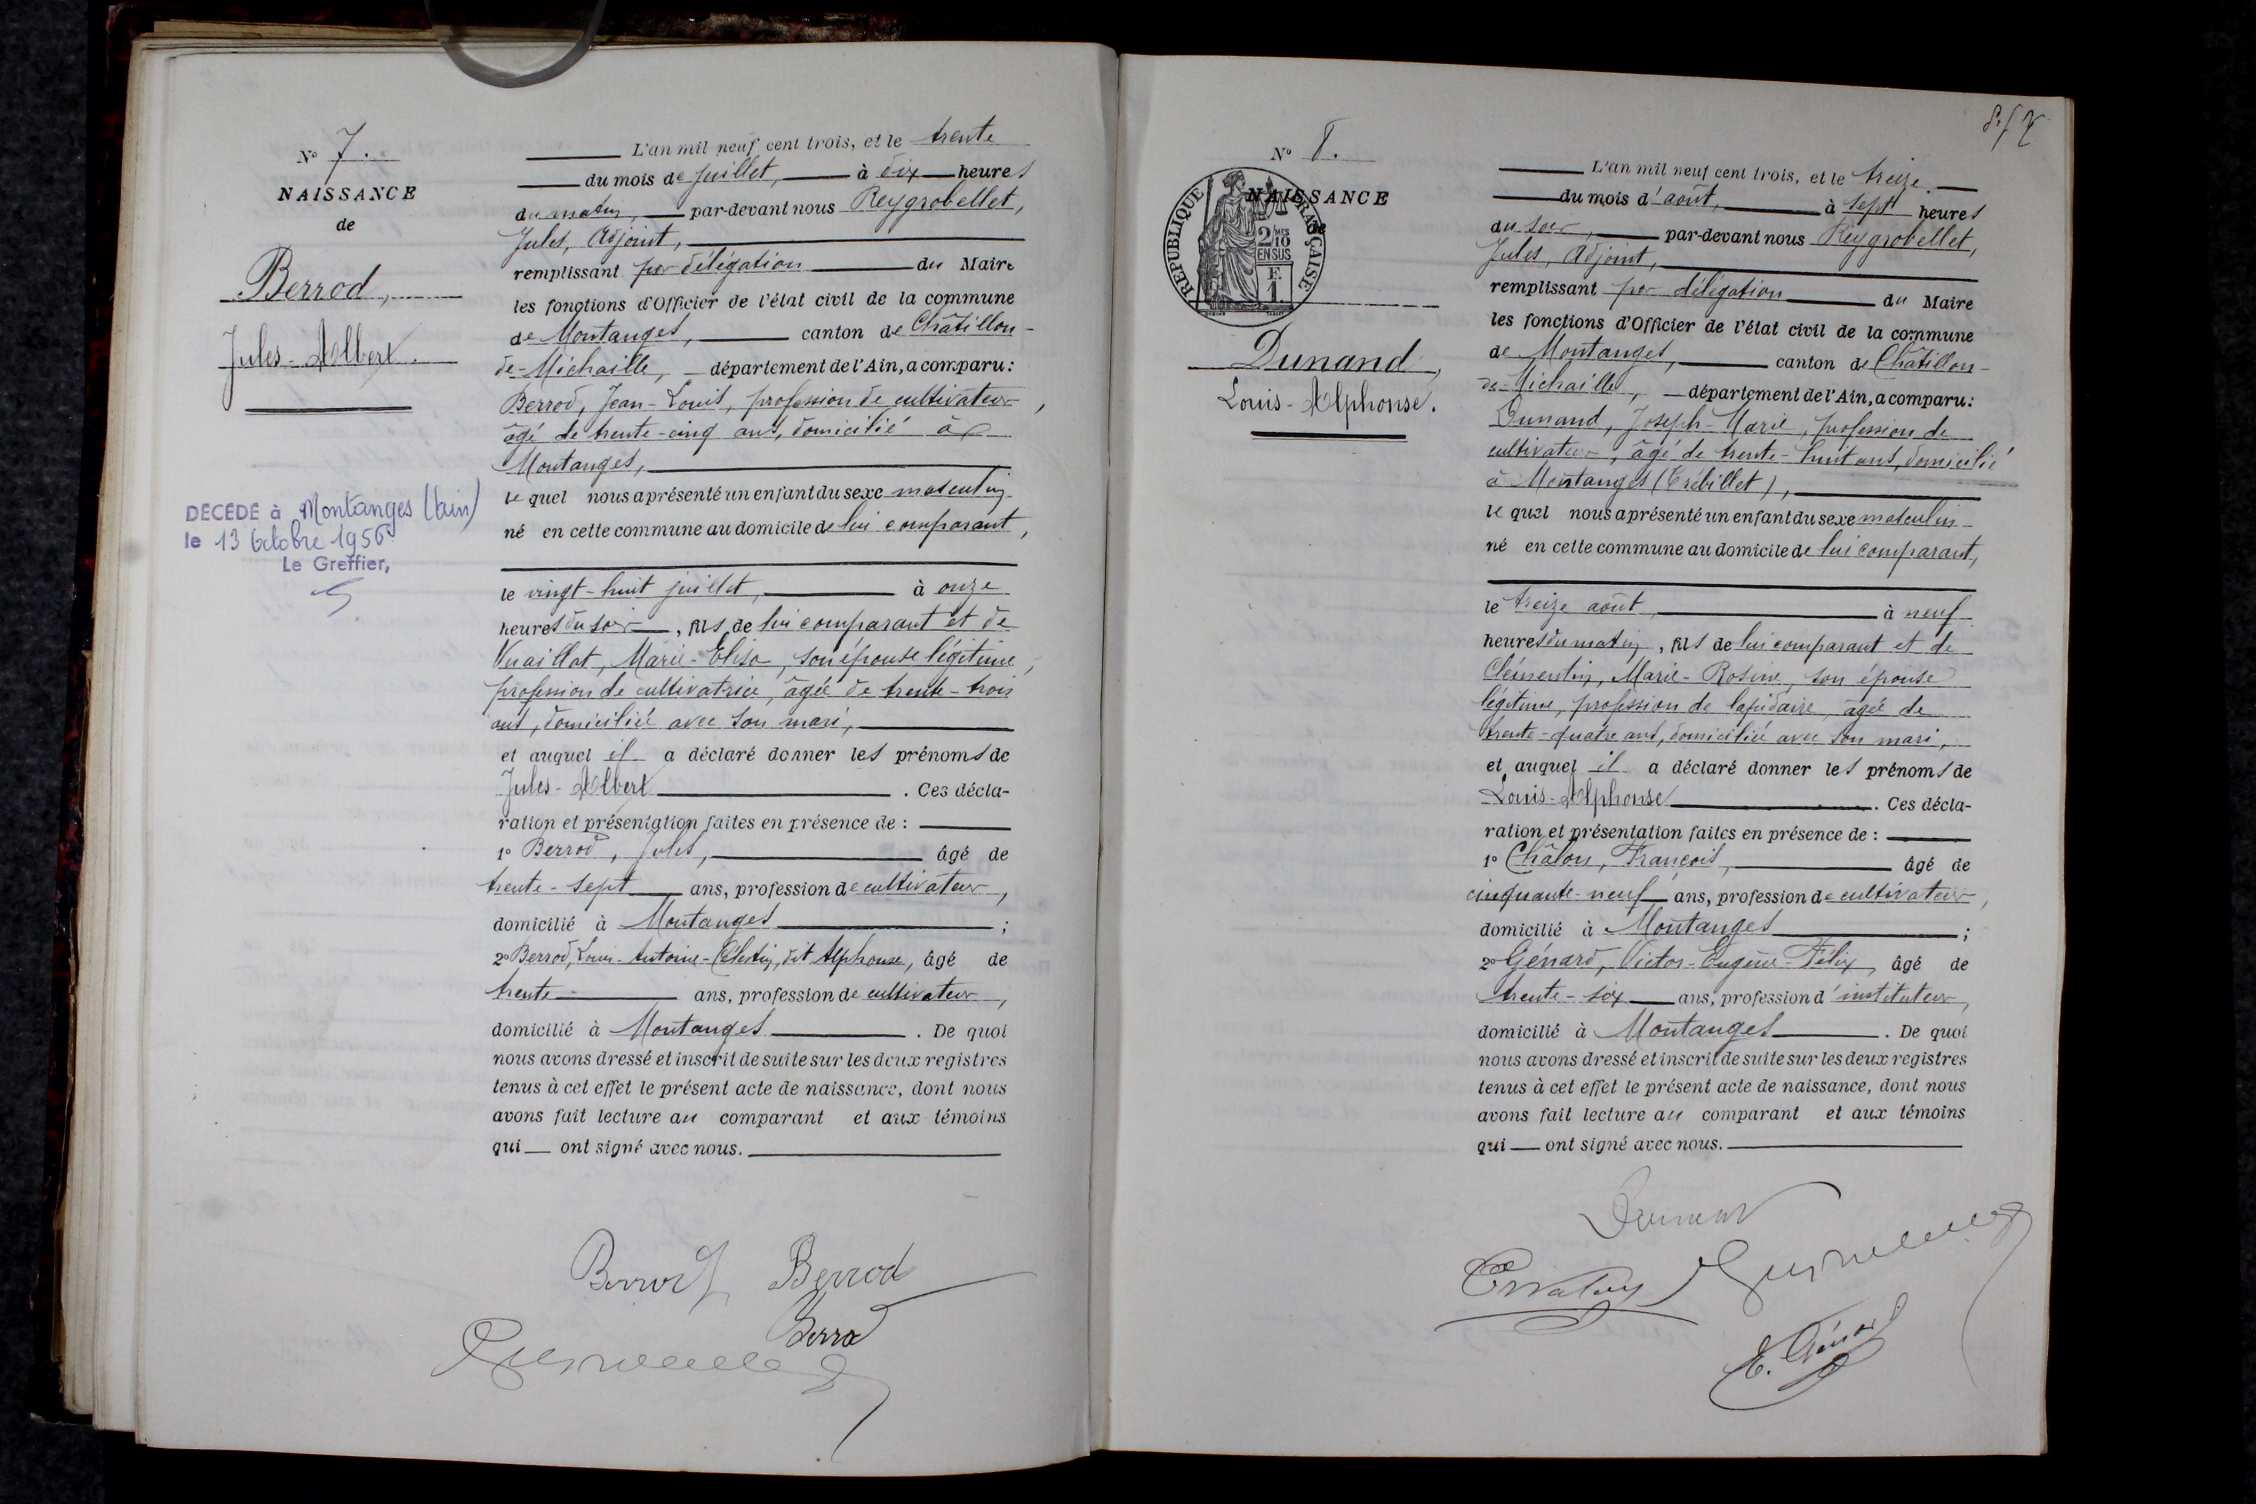 Nº 7.
NAISSANCE
de
Berrod,
Jules-Albert.
DÉCÉDÉ à Montanges (Ain)
le 13 octobre 1956
Le Greffier,
L'an mil neuf cent trois, et le trente
du mois de juillet, à dix heures
du matin, par-devant nous Reygrobellet,
Jules, Adjoint,
remplissant par délégation du Maire
les fonctions d'Officier de l'état civil de la commune
de Montanges, canton de Châtillon-
de-Michaille, département de l'Ain, a comparu:
Berrod, Jean-Louis, profession de cultivateur,
âgé de trente-cinq ans, domicilié à
Montanges,
le quel nous a présenté un enfant du sexe masculin
né en cette commune au domicile de lui comparant,
le vingt-huit juillet, à onze
heures du soir, fils de lui comparant et de
Vuaillat, Marie-Elisa, son épouse légitime,
profession de cultivatrice, âgée de trente-trois
ans, domiciliée avec son mari,
et auquel il a déclaré donner les prénoms de
Jules-Albert. Ces décla-
ration et présentation faites en présence de :
1º Berrod, Jules, âgé de
trente-sept ans, profession de cultivateur,
domicilié à Montanges ;
2º Berrod, Louis-Antoine-Célestin, dit Alphonse, âgé de
trente ans, profession de cultivateur,
domicilié à Montanges. De quoi
nous avons dressé et inscrit de suite sur les deux registres
tenus à cet effet le présent acte de naissance, dont nous
avons fait lecture au comparant et aux témoins
qui ont signé avec nous.
Berrod Berrod
Berrod
Nº 8.
NAISSANCE
de
RÉPUBLIQUE FRANÇAISE
2/10 MES
EN SUS
F.
1.
Dunand,
Louis-Alphonse.
L'an mil neuf cent trois, et le treize
du mois d'août, à sept heures
du soir, par-devant nous Reygrobellet,
Jules, Adjoint,
remplissant par délégation du Maire
les fonctions d'Officier de l'état civil de la commune
de Montanges, canton de Châtillon-
de-Michaille, département de l'Ain, a comparu:
Dunand, Joseph-Marie, profession de
cultivateur, âgé de trente-huit ans, domicilié
à Montanges (Trébillet),
le quel nous a présenté un enfant du sexe masculin
né en cette commune au domicile de lui comparant,
le treize août, à neuf
heures du matin, fils de lui comparant et de
Clémentin, Marie-Rosine, son épouse
légitime, profession de lapidaire, âgée de
trente-quatre ans, domiciliée avec son mari,
et auquel il a déclaré donner les prénoms de
Louis-Alphonse. Ces décla-
ration et présentation faites en présence de :
1º Châlon, François, âgé de
cinquante-neuf ans, profession de cultivateur,
domicilié à Montanges ;
2º Génard, Victor-Eugène-Félix, âgé de
trente-six ans, profession d'instituteur,
domicilié à Montanges. De quoi
nous avons dressé et inscrit de suite sur les deux registres
tenus à cet effet le présent acte de naissance, dont nous
avons fait lecture au comparant et aux témoins
qui ont signé avec nous.
Dunand
E. Génard